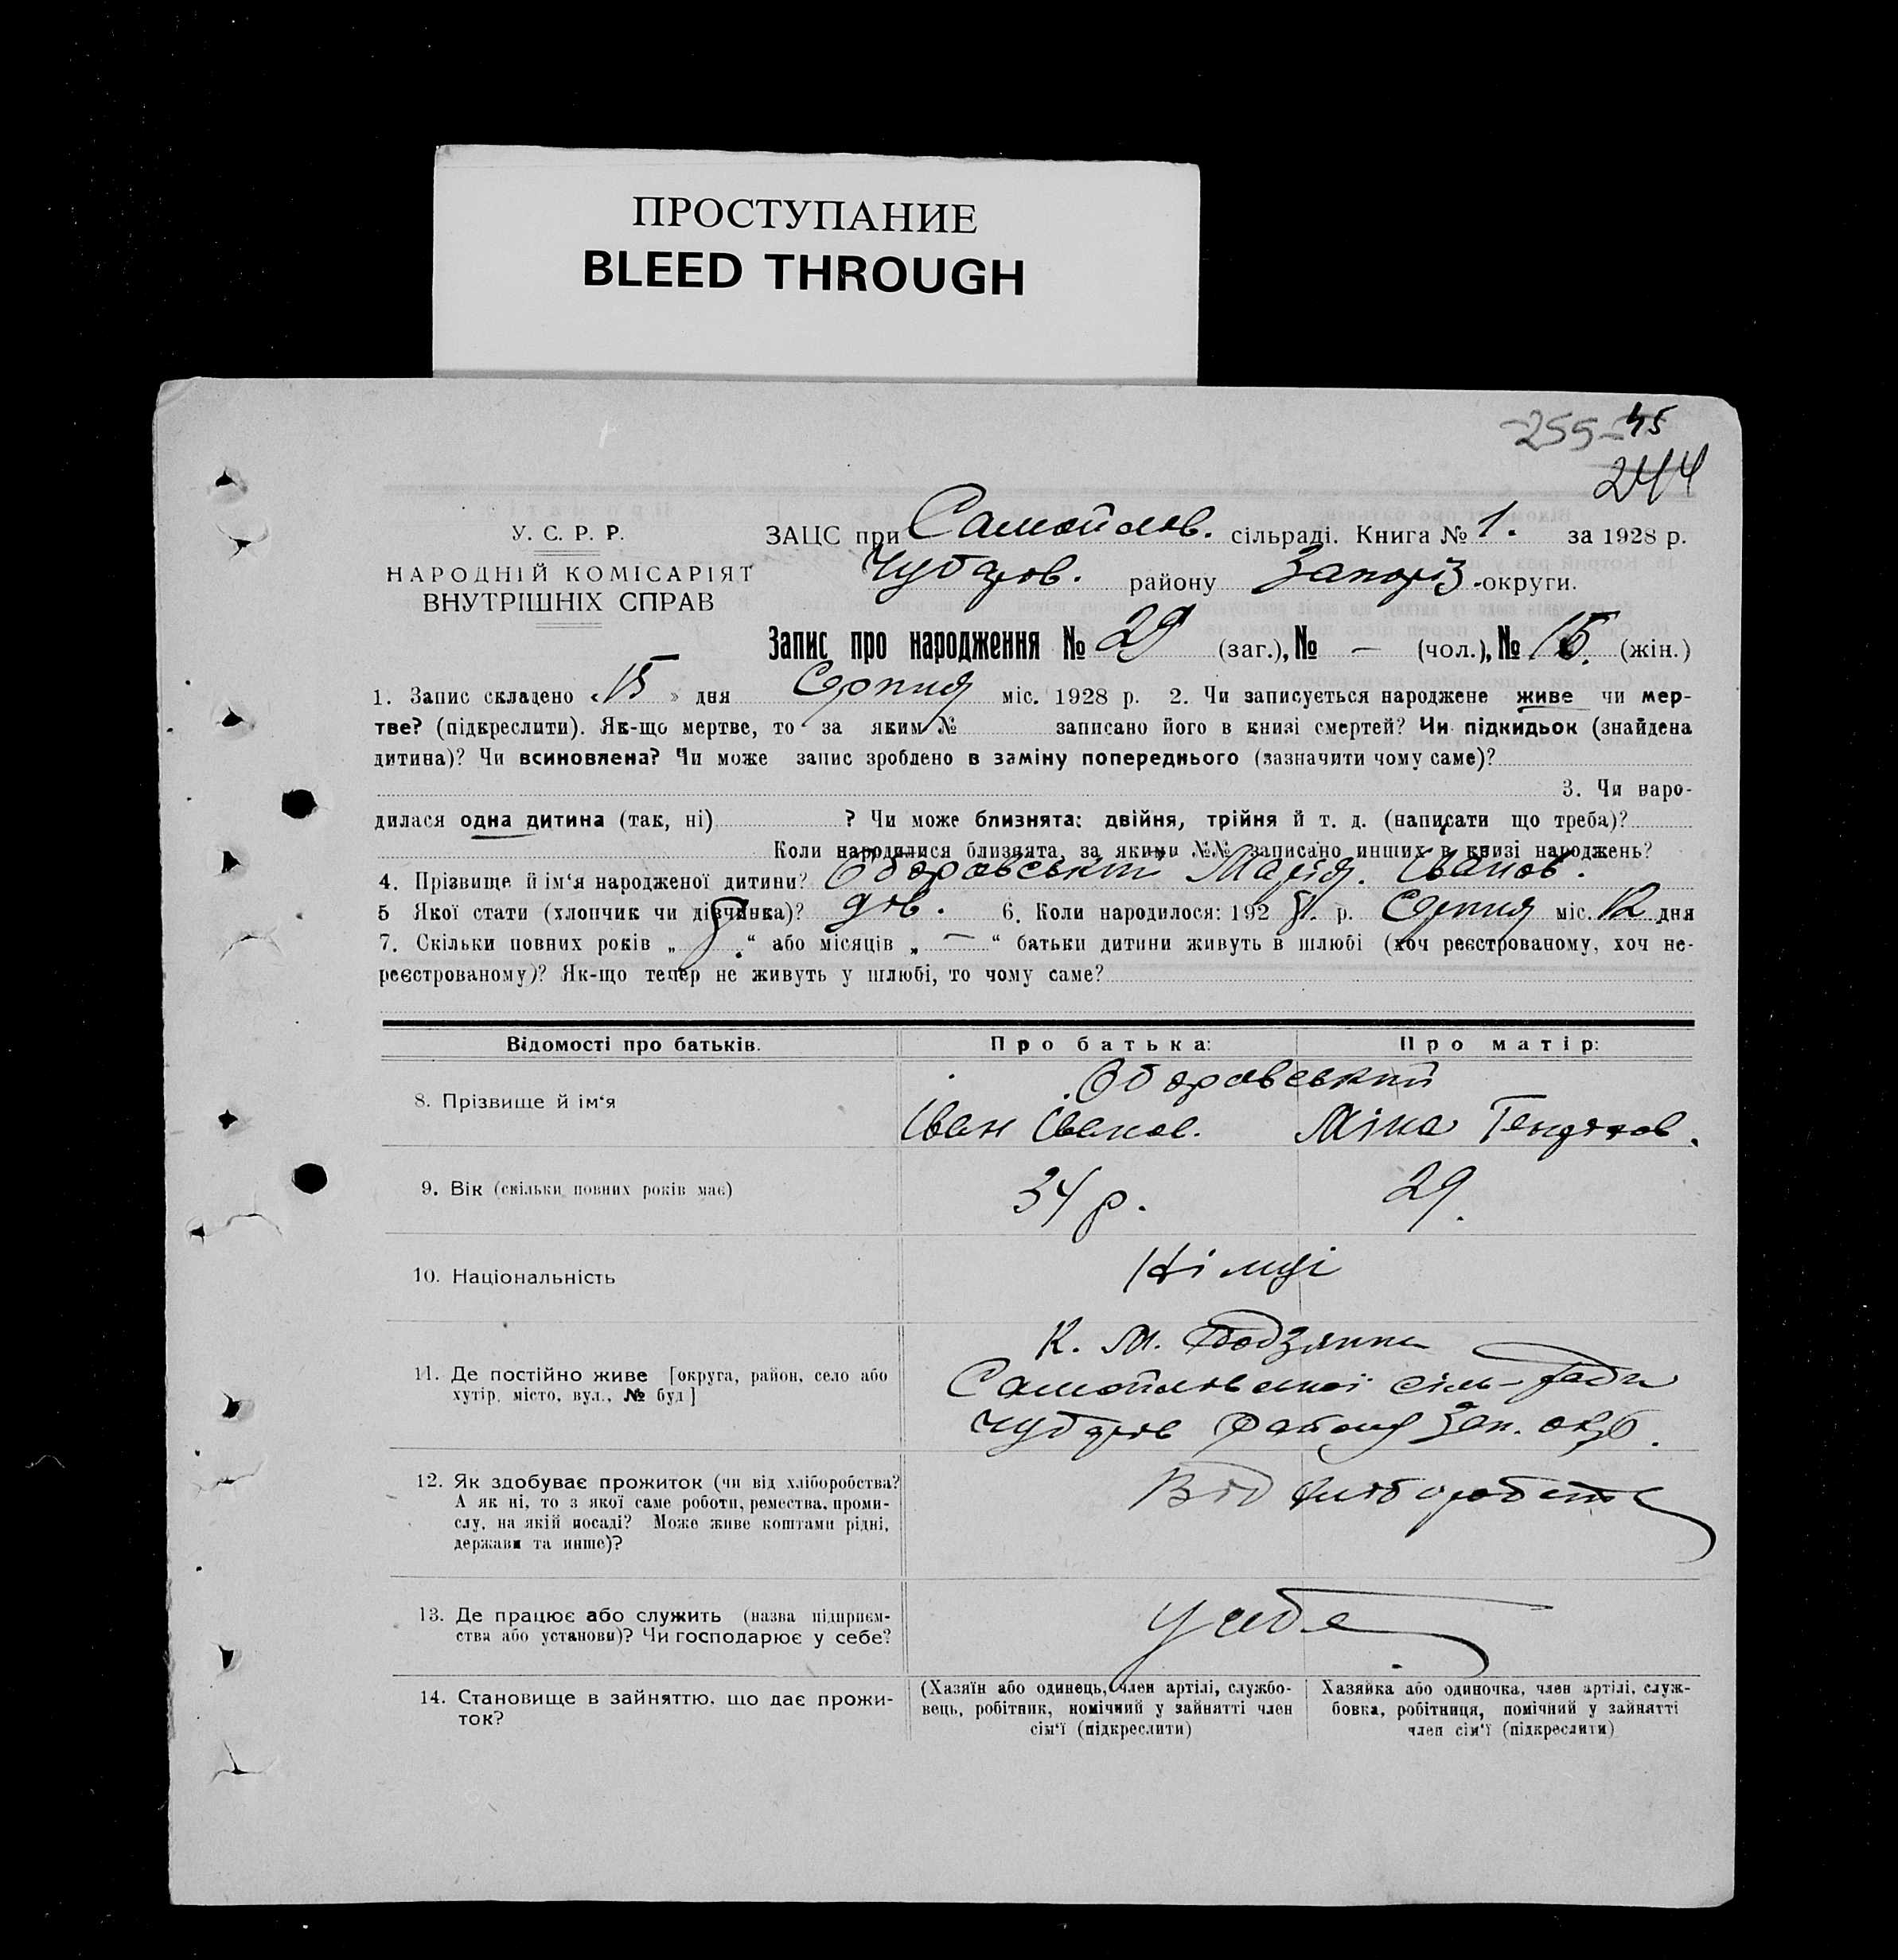 ПРОСТУПАНИЕ
BLEED THROUGH
-255- 45
244
У. С. Р. Р.
НАРОДНІЙ КОМІСАРІЯТ
ВНУТРІШНІХ СПРАВ
ЗАЦС при Самойлов. сільраді. Книга № 1. за 1928 р.
Чубарів. району Запоріз.-округи.
Запис про народження № 29 (заг.), № — (чол.), № 15. (жін.)
1. Запис складено « 15 » дня Серпня міс. 1928 р. 2. Чи записується народжене живе чи мер-
тве? (підкреслити). Як-що мертве, то за яким № записано його в книзі смертей? Чи підкидьок (знайдена
дитина)? Чи всиновлена? Чи може запис зроблено в заміну попереднього (зазначити чому саме)?
3. Чи наро-
дилася одна дитина (так, ні) ? Чи може близнята: двійня, трійня й т. д. (написати що треба)?
Коли народилися близнята, за якими №№ записано инших в книзі народжень?
4. Прізвище й ім‘я народженої дитини? Марія. Іванов.
5 Якої стати (хлопчик чи дівчинка)? дів. 6. Коли народилося: 192 8. р. Серпня міс. 12 дня
7. Скільки повних років „ “ або місяців „ — “ батьки дитини живуть в шлюбі (хоч реєстрованому, хоч не-
реєстрованому)? Як-що тепер не живуть у шлюбі, то чому саме?
Відомості про батьків.
Про батька:
Про матір:
8. Прізвище й ім‘я
Іван Іванов.
Міна
9. Вік (скільки повних років має)
34 р.
29.
10. Національність
Німці
11. Де постійно живе [округа, район, село або
хутір, місто, вул., № буд]
К. М.
Самойлівської сіль-ради
Чубарів району Зап. окр.
12. Як здобуває прожиток (чи від хліборобства?
А як ні, то з якої саме роботи, ремества, проми-
слу, на якій посаді? Може живе коштами рідні,
держави та инше)?
Від хліборобства
13. Де працює або служить (назва підприєм-
ства або установи)? Чи господарює у себе?
у себе
14. Становище в зайняттю, що дає прожи-
ток?
(Хазяїн або одинець, член артілі, службо-
вець, робітник, помічний у зайнятті член
сім‘ї (підкреслити)
Хазяйка або одиночка, член артілі, служ-
бовка, робітниця, помічний у зайнятті
член сім‘ї (підкреслити)